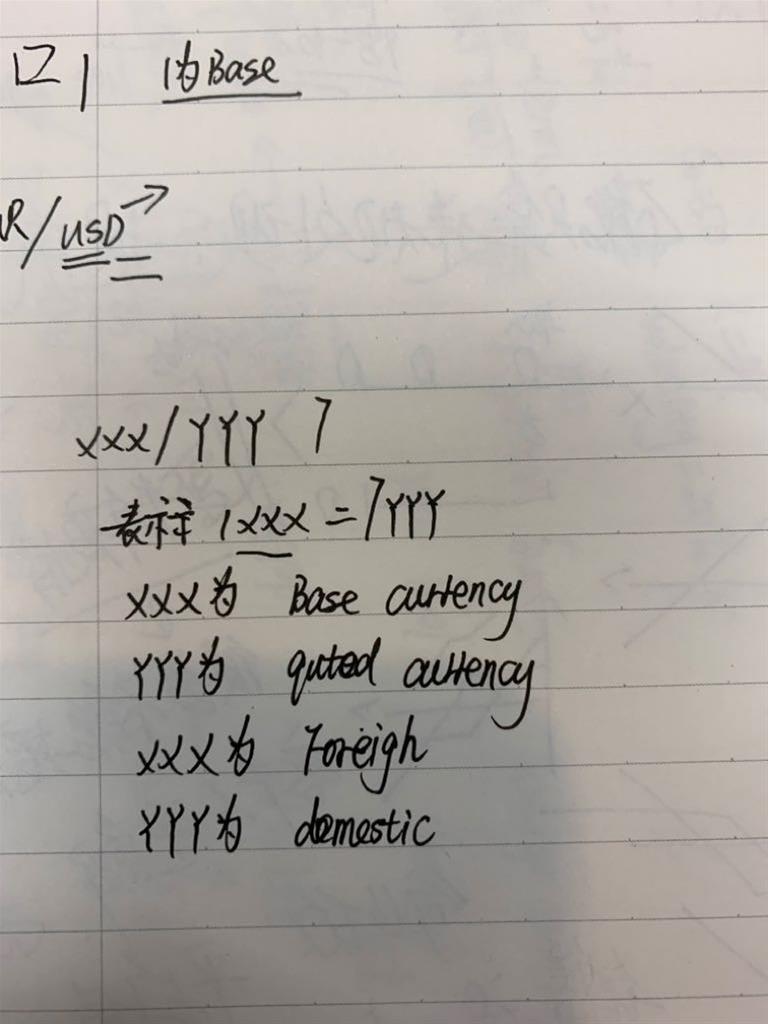 1 1为Base
R/USD →
xxx/YYY 7
表示 1xxx = 7YYY
xxx为 Base currency
YYY为 quted currency
xxx为 Foreigh
YYY为 domestic